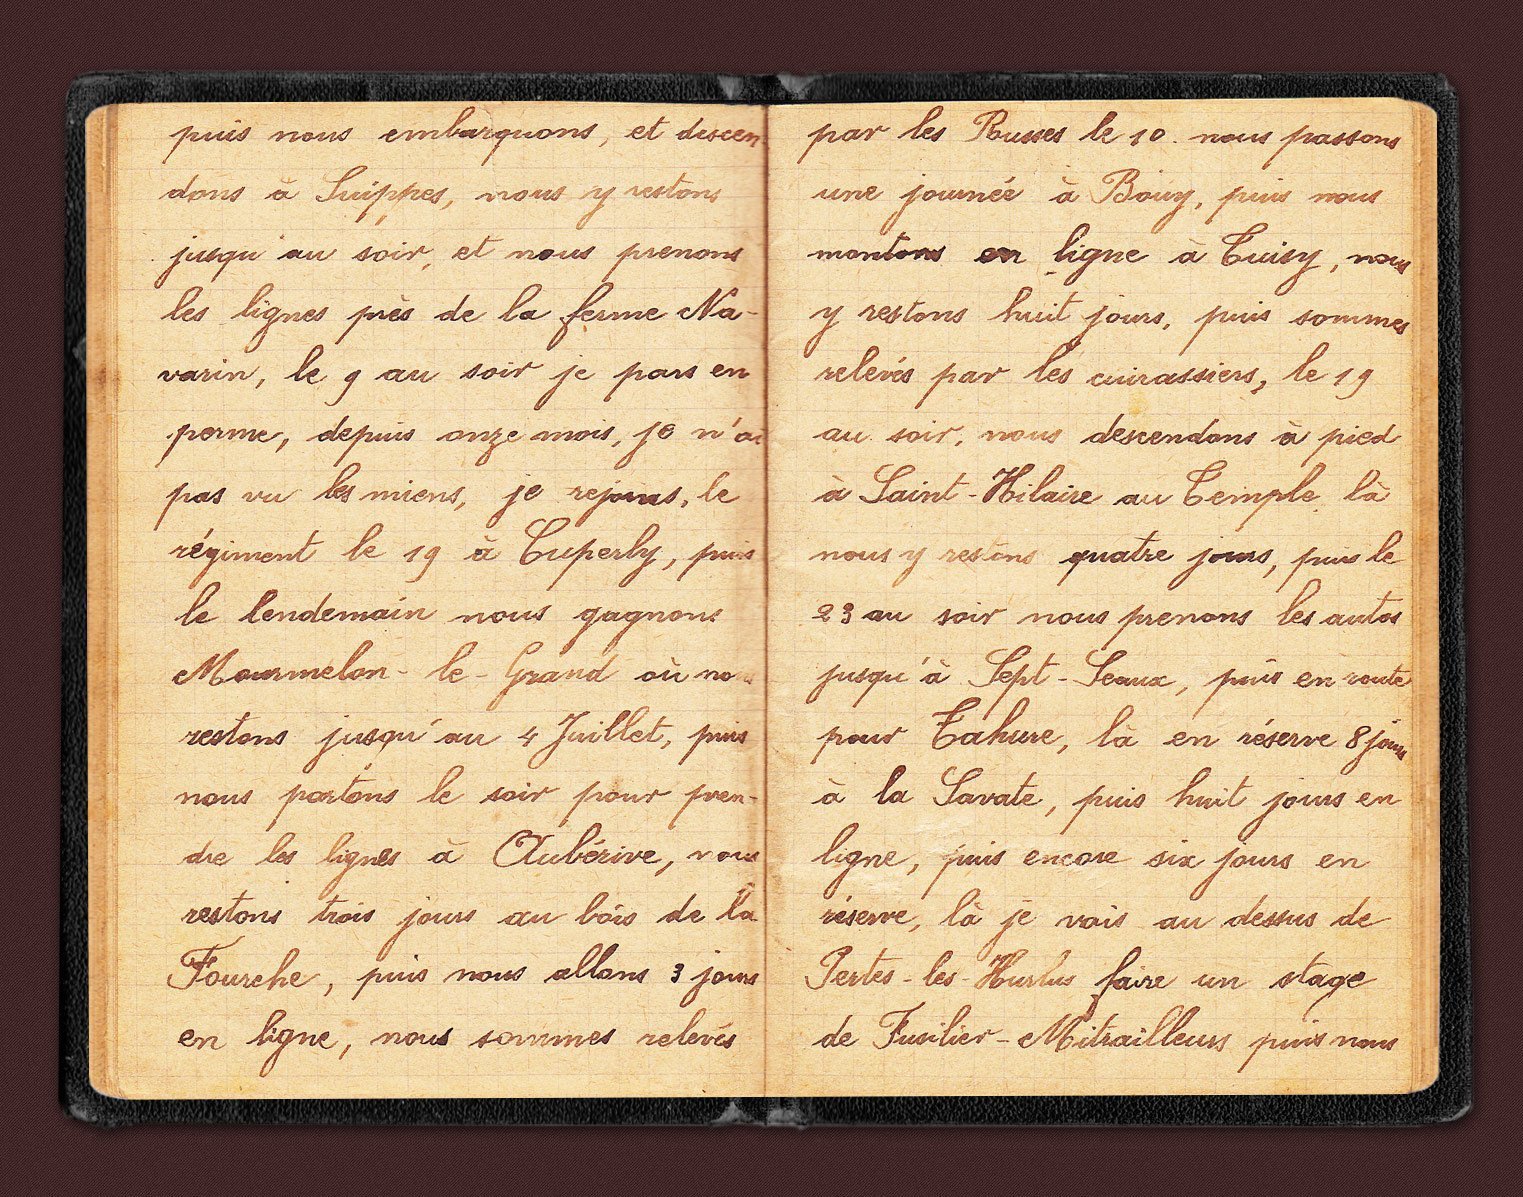 puis nous embarquons, et descen
dons à Suippes, nous y restons
jusqu'au soir, et nous prenons
les lignes près de la ferme Na-
varin, le 9 au soir je pars en
perme, depuis onze mois, je n'ai
pas vu les miens, je rejoins, le
régiment le 19 à Cuperly, puis
le lendemain nous gagnons
Mourmelon-le-Grand où nous
restons jusqu'au 4 Juillet, puis
nous partons le soir pour pren-
dre les lignes à Aubérive, nous
restons trois jours au bois de la
Fourche, puis nous allons 3 jours
en ligne, nous sommes relevés
par les Russes le 10. nous passons
une journée à Bouy, puis nous
montons en ligne à Cuisy, nous
y restons huit jours, puis sommes
relevés par les cuirassiers, le 19
au soir, nous descendons à pied
à Saint-Hilaire au Temple, là
nous y restons quatre jours, puis le
23 au soir nous prenons les autos
jusqu'à Sept-Seaux, puis en route
pour Tahure, là en réserve 8 jours
à la Savate, puis huit jours en
ligne, puis encore six jours en
réserve, là je vais au dessus de
Pertes-les-Hurlus faire un stage
de Fusilier-Mitrailleurs puis nous